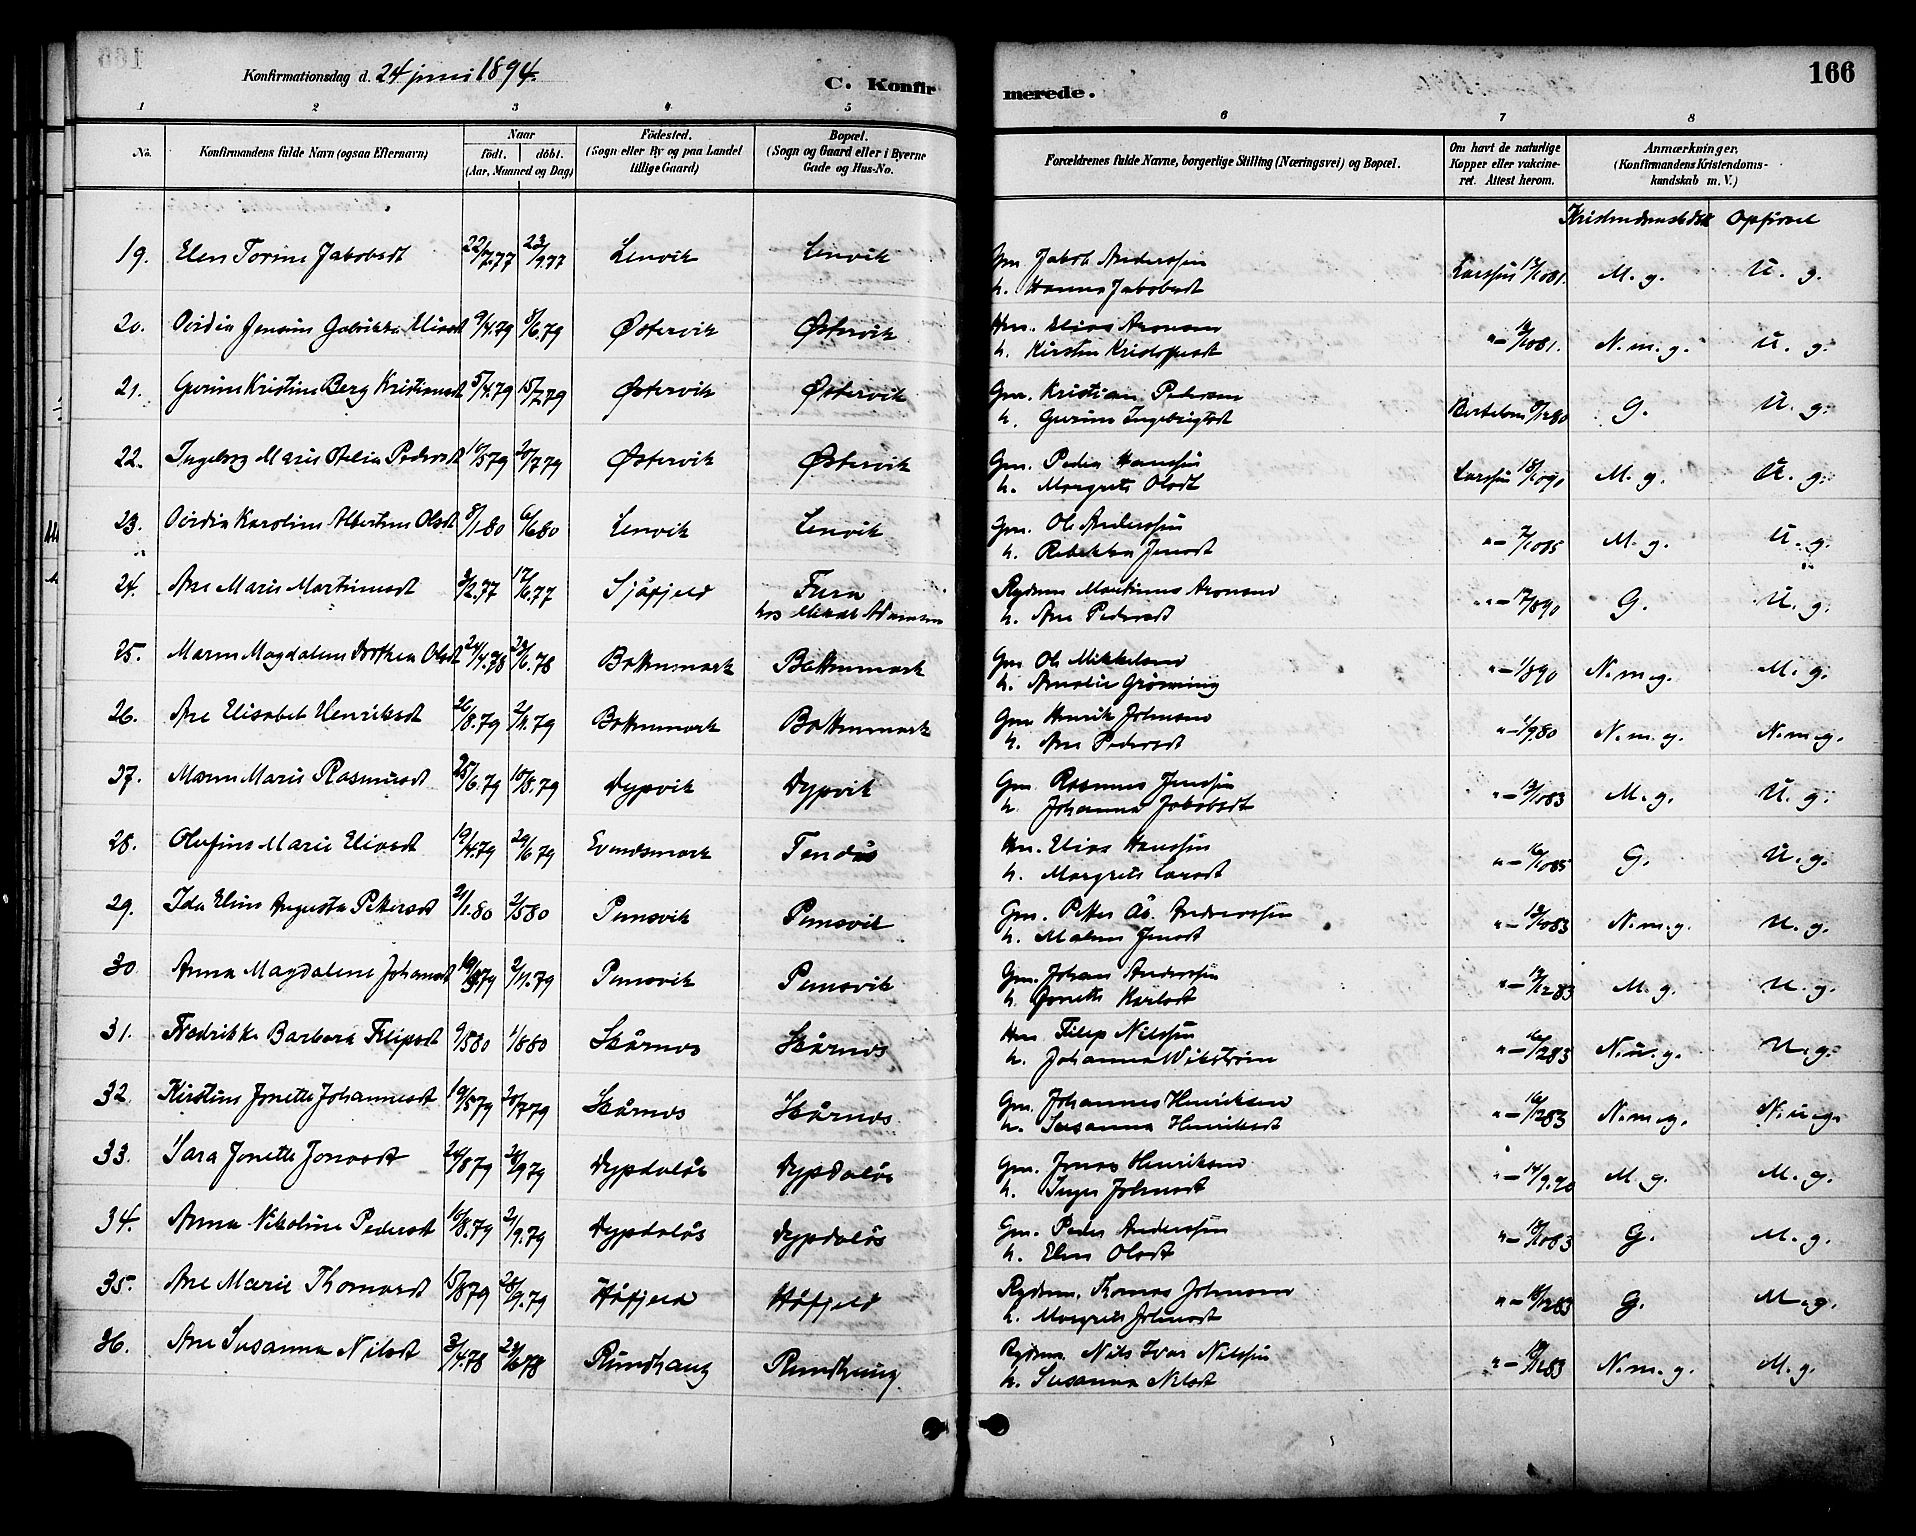 166
Konfirmationsdag d. 24 juni 1894.
C. Konfirmerede.
1 2 3 4 5 6 7 8
No. Konfirmandens fulde Navn (ogsaa Efternavn) Naar födt. döbt. (Aar, Maaned og Dag) Födested. (Sogn eller By og paa Landet tillige Gaard) Bopæl. (Sogn og Gaard eller i Byerne Gade og Hus-No. Forældrenes fulde Navne, borgerlige Stilling (Næringsvei) og Bopæl. Om havt de naturlige Kopper eller vakcineret. Attest herom. Anmærkninger, (Konfirmandens Kristendomskundskab m. V.)
Opförsel
19. Elen Torine Jakobsdt 22/7.77 23/9.77 Lenvik Lenvik Gm Jakob Anderssen
h. Hanna Jakobsdt Larssen M. g. U. g.
20. 9/4.79 8/6.79 Østervik Østervik Hm. Elias Aronsen
h. Kirsten N. m. g. U. g.
21. Gurine Kristine Berg 5/4.79 15/7.79 Østervik Østervik Gm. Kristian Pedersen
h. Gurine G. U. g.
22. Ingeborg Marie Pedersdt 10/5 79 20/7 79 Østervik Østervik Gm. Peder Hanssen
h. Margrete Olsdt Larssen 18/10 90 M. g. U. g.
23. Karoline Albertine Olsdt 8/1.80 6/6 80 Lenvik Lenvik Gm. Ole Anderssen
h. Rebekka Jensdt M. g. U. g.
24. Ane Marie Martinusdt 3/2.77 17/6.77 Sjåfjeld Fura
hos Mikal Adamsen Rydm Martinus Aronsen
h. Ane Pedersdt "– 17/8 90 G. U. g.
25. Maren Magdalena Dorthea Olsdt 24/4.78 23/6.78 Bottenmark Bottenmark Gm Ole Mikkelsen
h. Amalie Grønning "– 1/8 90 N. m. g. M. g.
26. Ane Elisabet Henriksdt 26/8.79 2/11.79 Bottenmark Bottenmark Gm Henrik Johnsen
h. Ane Pedersdt N. m. g. N. m. g.
37. Maren Marie Rasmusdt 25/6.79 10/8.79 Dypvik Dypvik Gm. Rasmus Jenssen
h. Johanna Jakobsdt M. g. U. g.
28. Olufine Marie Eliasdt 19/4.79 29/6 79 Evendsmark Hm. Elias Hanssen
h. Margrete Larsdt "– 16/10 85 G. U. g.
29. Ida Eline Augusta Pettersdt 21/1.80 2/5 80 Pumsvik Pumsvik Gm. Petter Anderssen
h. Malene Jensdt N. m. g. U. g.
30. Anna Magdalene Johansdt 2/11.79 Pumsvik Pumsvik Gm. Johan Anderssen
h. Jonette Karlsdt M. g. U. g.
31. Fredrikke Barbara Filipsdt 9/5 80 1/8 80 Skårnes Skårnes Hm Filip Nilssen
h. Johanna Wikstrøm "– 16/12 83 N. m. g. U. g.
32. Kirstine Jonette Johannesdt 19/5 79 20/7 79 Skårnes Skårnes Gm. Johannes Henriksen
h. Susanna Henriksdt "– 16/12 83 N. m. g. N. m. g.
33. Sara Jonette Jonasdt 24/8 79 28/9 79 Dypdalås Dypdalås Gm. Jonas Henriksen
h. Inger Johnsdt "– 14/9.90 M. g. M. g.
34. Anna Nikoline Pedersdt 10/8.79 21/9.79 Dypdalås Dypdalås Gm. Peder Anderssen
h. Elen Olsdt G. M. g.
35. Ane Marie Thomasdt 15/8 79 28/9.79 Håfjeld Håfjeld Rydm. Thomas Johnsen
h. Margrete Johnsdt G. M. g.
36. Ane Susanna Nilsdt 3/4.78 23/6 78 Rundhaug Rundhaug Rydm. Nils Ivar Nilssen
h. Susanna Nilsdt N. m. g. M. g.